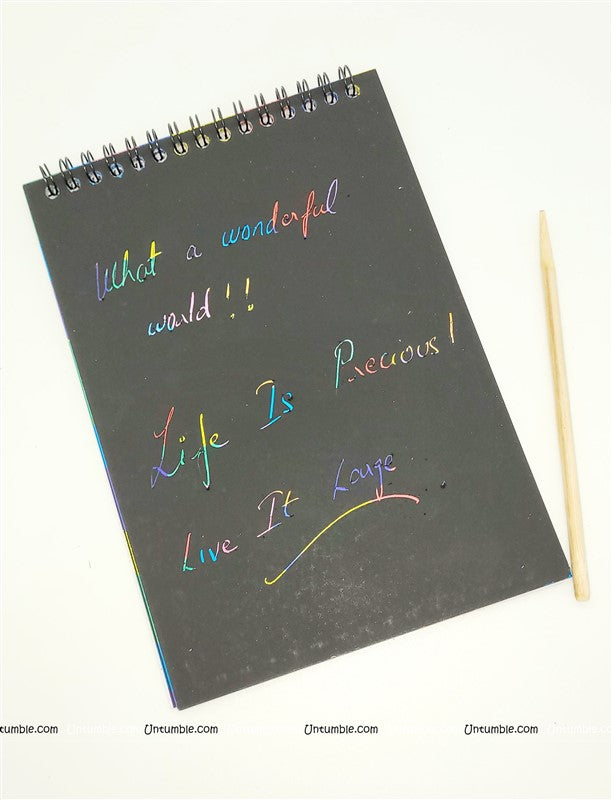 What a wonderful
would!!
Life Is Precious!
Live It Large
Untumble.com Untumble.com Untumble.com Untumble.com Untumble.com Untumble.com Untumble.com